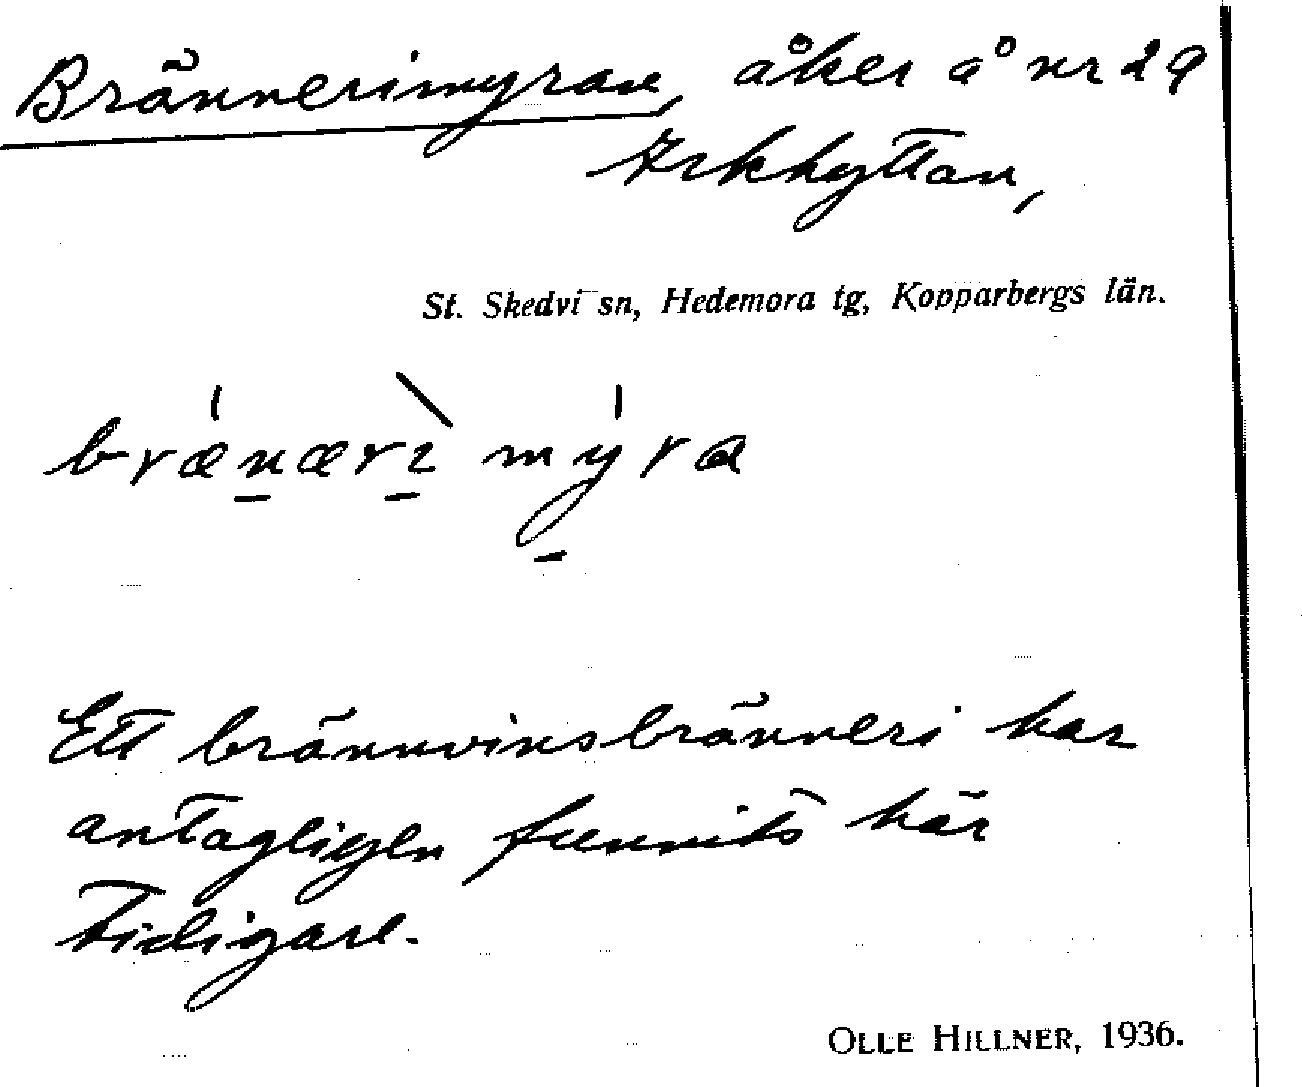 Brännerimyran, åker å nr 29
Yrkhyttan,
St. Skedvi sn, Hedemora tg, Kopparbergs län.
brænæri myra
Ett brännvinsbränneri har
antagligen funnits här
tidigare.
OLLE HILLNER, 1936.